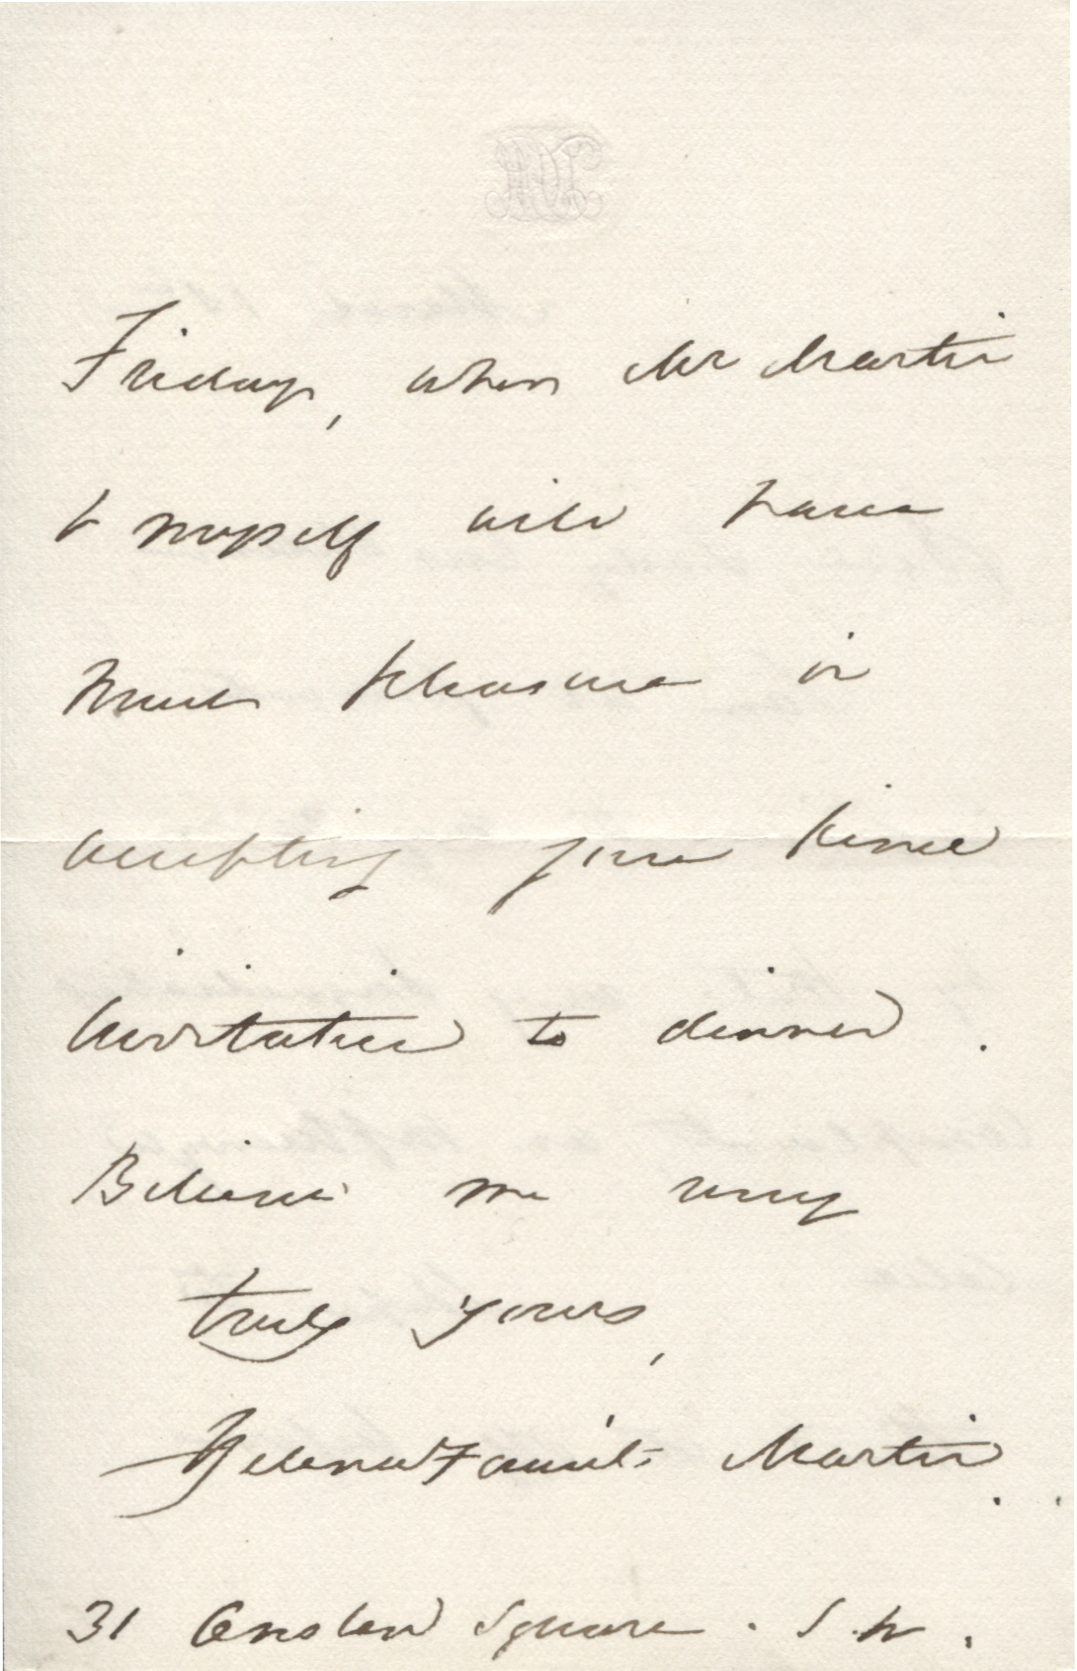 Friday, when Mr Martin
& myself will have
much pleasure in
accepting your kind
invitation to dinner.
Believe me very
truly yours,
Helena Faucit Martin.
31 Onslow Square. S.W.